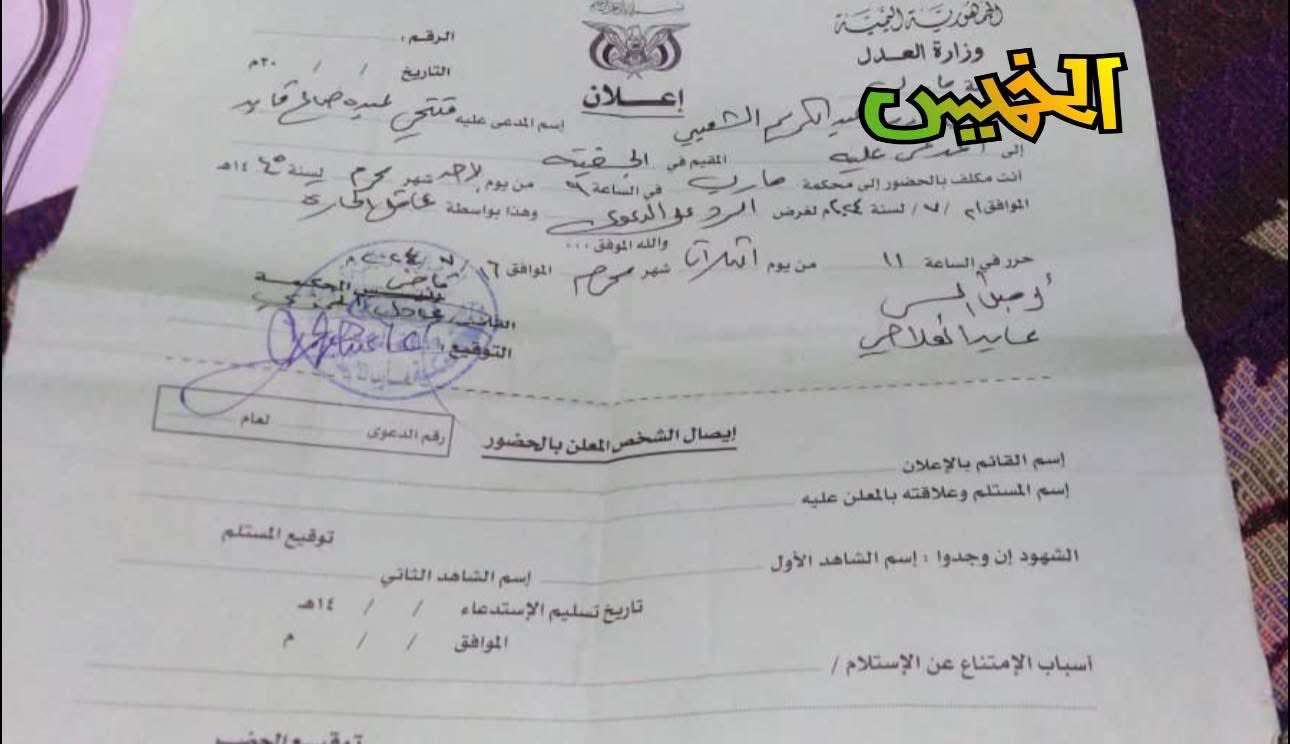 الجمهورية اليمنية
وزارة العدل
الرقم:
التاريخ / / ٢٠م
إعلان
الخميس
عبدالكريم الشعيبي
إسم المدعى عليه فتحي عبده صالح قايد
إلى المدعى عليه المقيم في الجفينة
أنت مكلف بالحضور إلى محكمة مأرب في الساعة ٩ من يوم الاحد شهر محرم لسنة ١٤٤٥هـ
الموافق ٢١ / ٧ / لسنة ٢٠٢٤م لغرض الرد على الدعوى وهذا بواسطة عاقل الحارة
والله الموفق ...
حرر في الساعة ١١ من يوم الثلاثاء شهر محرم الموافق ١٦
قاضي
رئيس المحكمة
التوقيع
رقم الدعوى لعام
إيصال الشخص المعلن بالحضور
إسم القائم بالإعلان
إسم المستلم وعلاقته بالمعلن عليه
توقيع المستلم
الشهود إن وجدوا : إسم الشاهد الأول
إسم الشاهد الثاني
تاريخ تسليم الإستدعاء / / ١٤هـ
الموافق / / م
أسباب الإمتناع عن الإستلام /